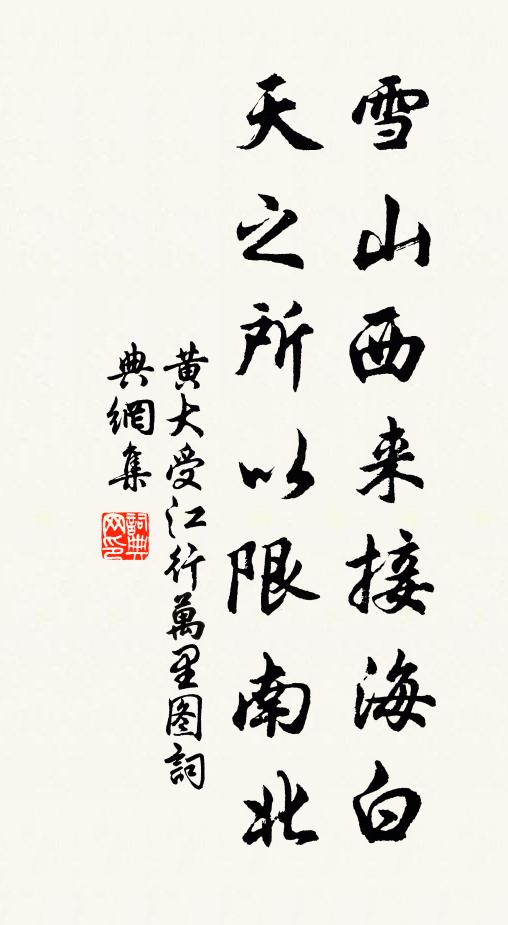 雪山西来接海白
天之所以限南北
黄大受江行萬里图詞
典網集
詞典网印